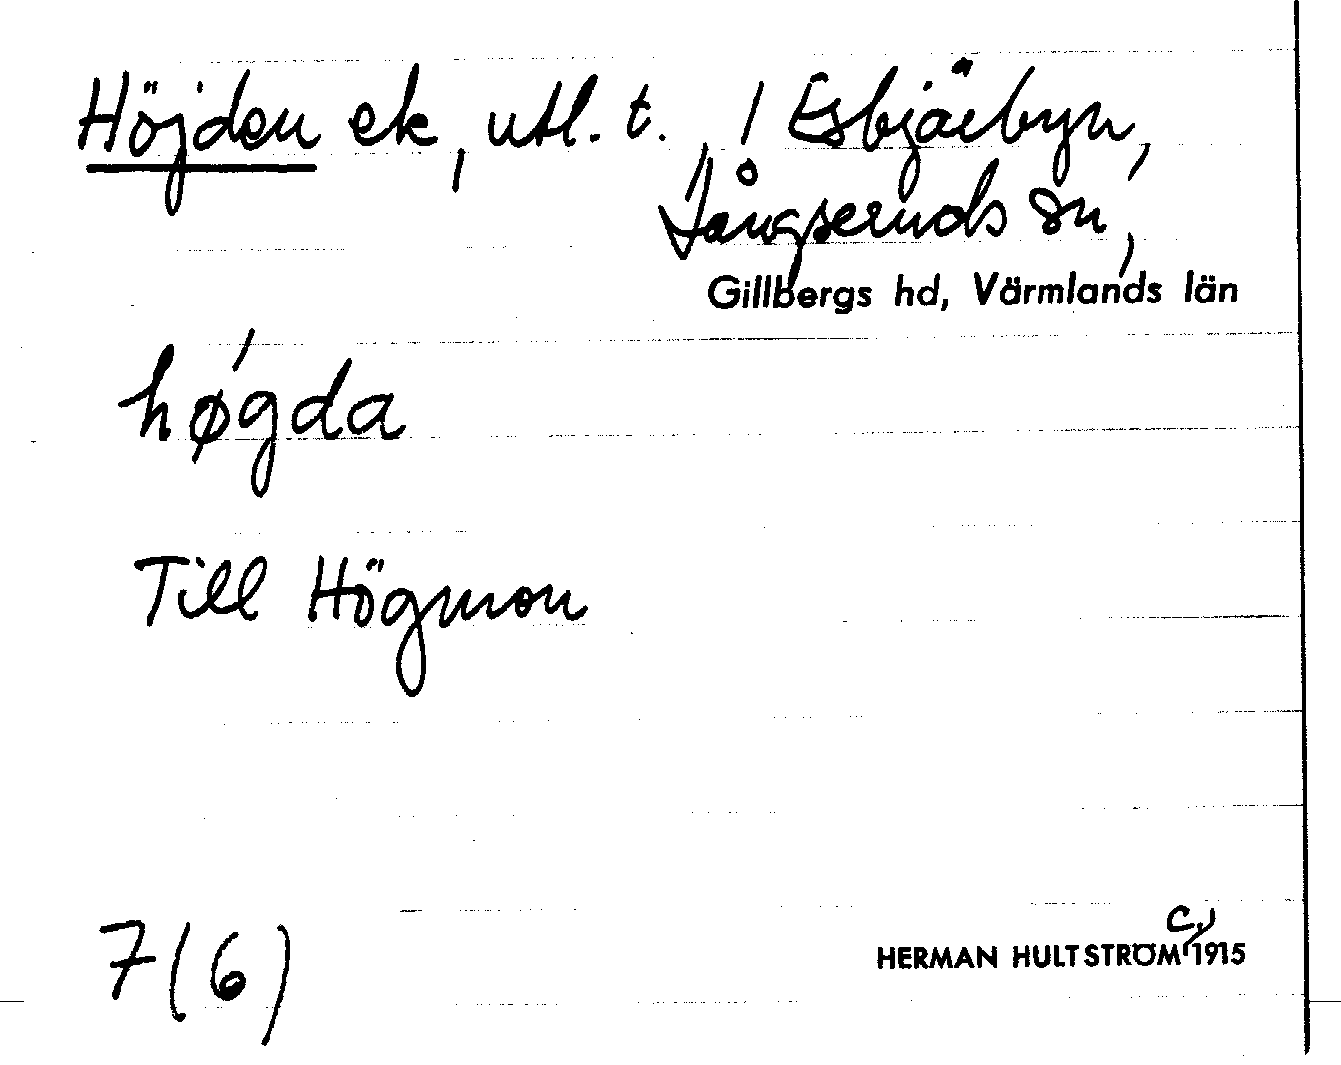 Höjden ek, utl. t. / Esbjörbyn,
Långseruds sn,
Gillbergs hd, Värmlands län
hø´gda
Till Högmon
7(6)
HERMAN HULTSTRÖM c. 1915